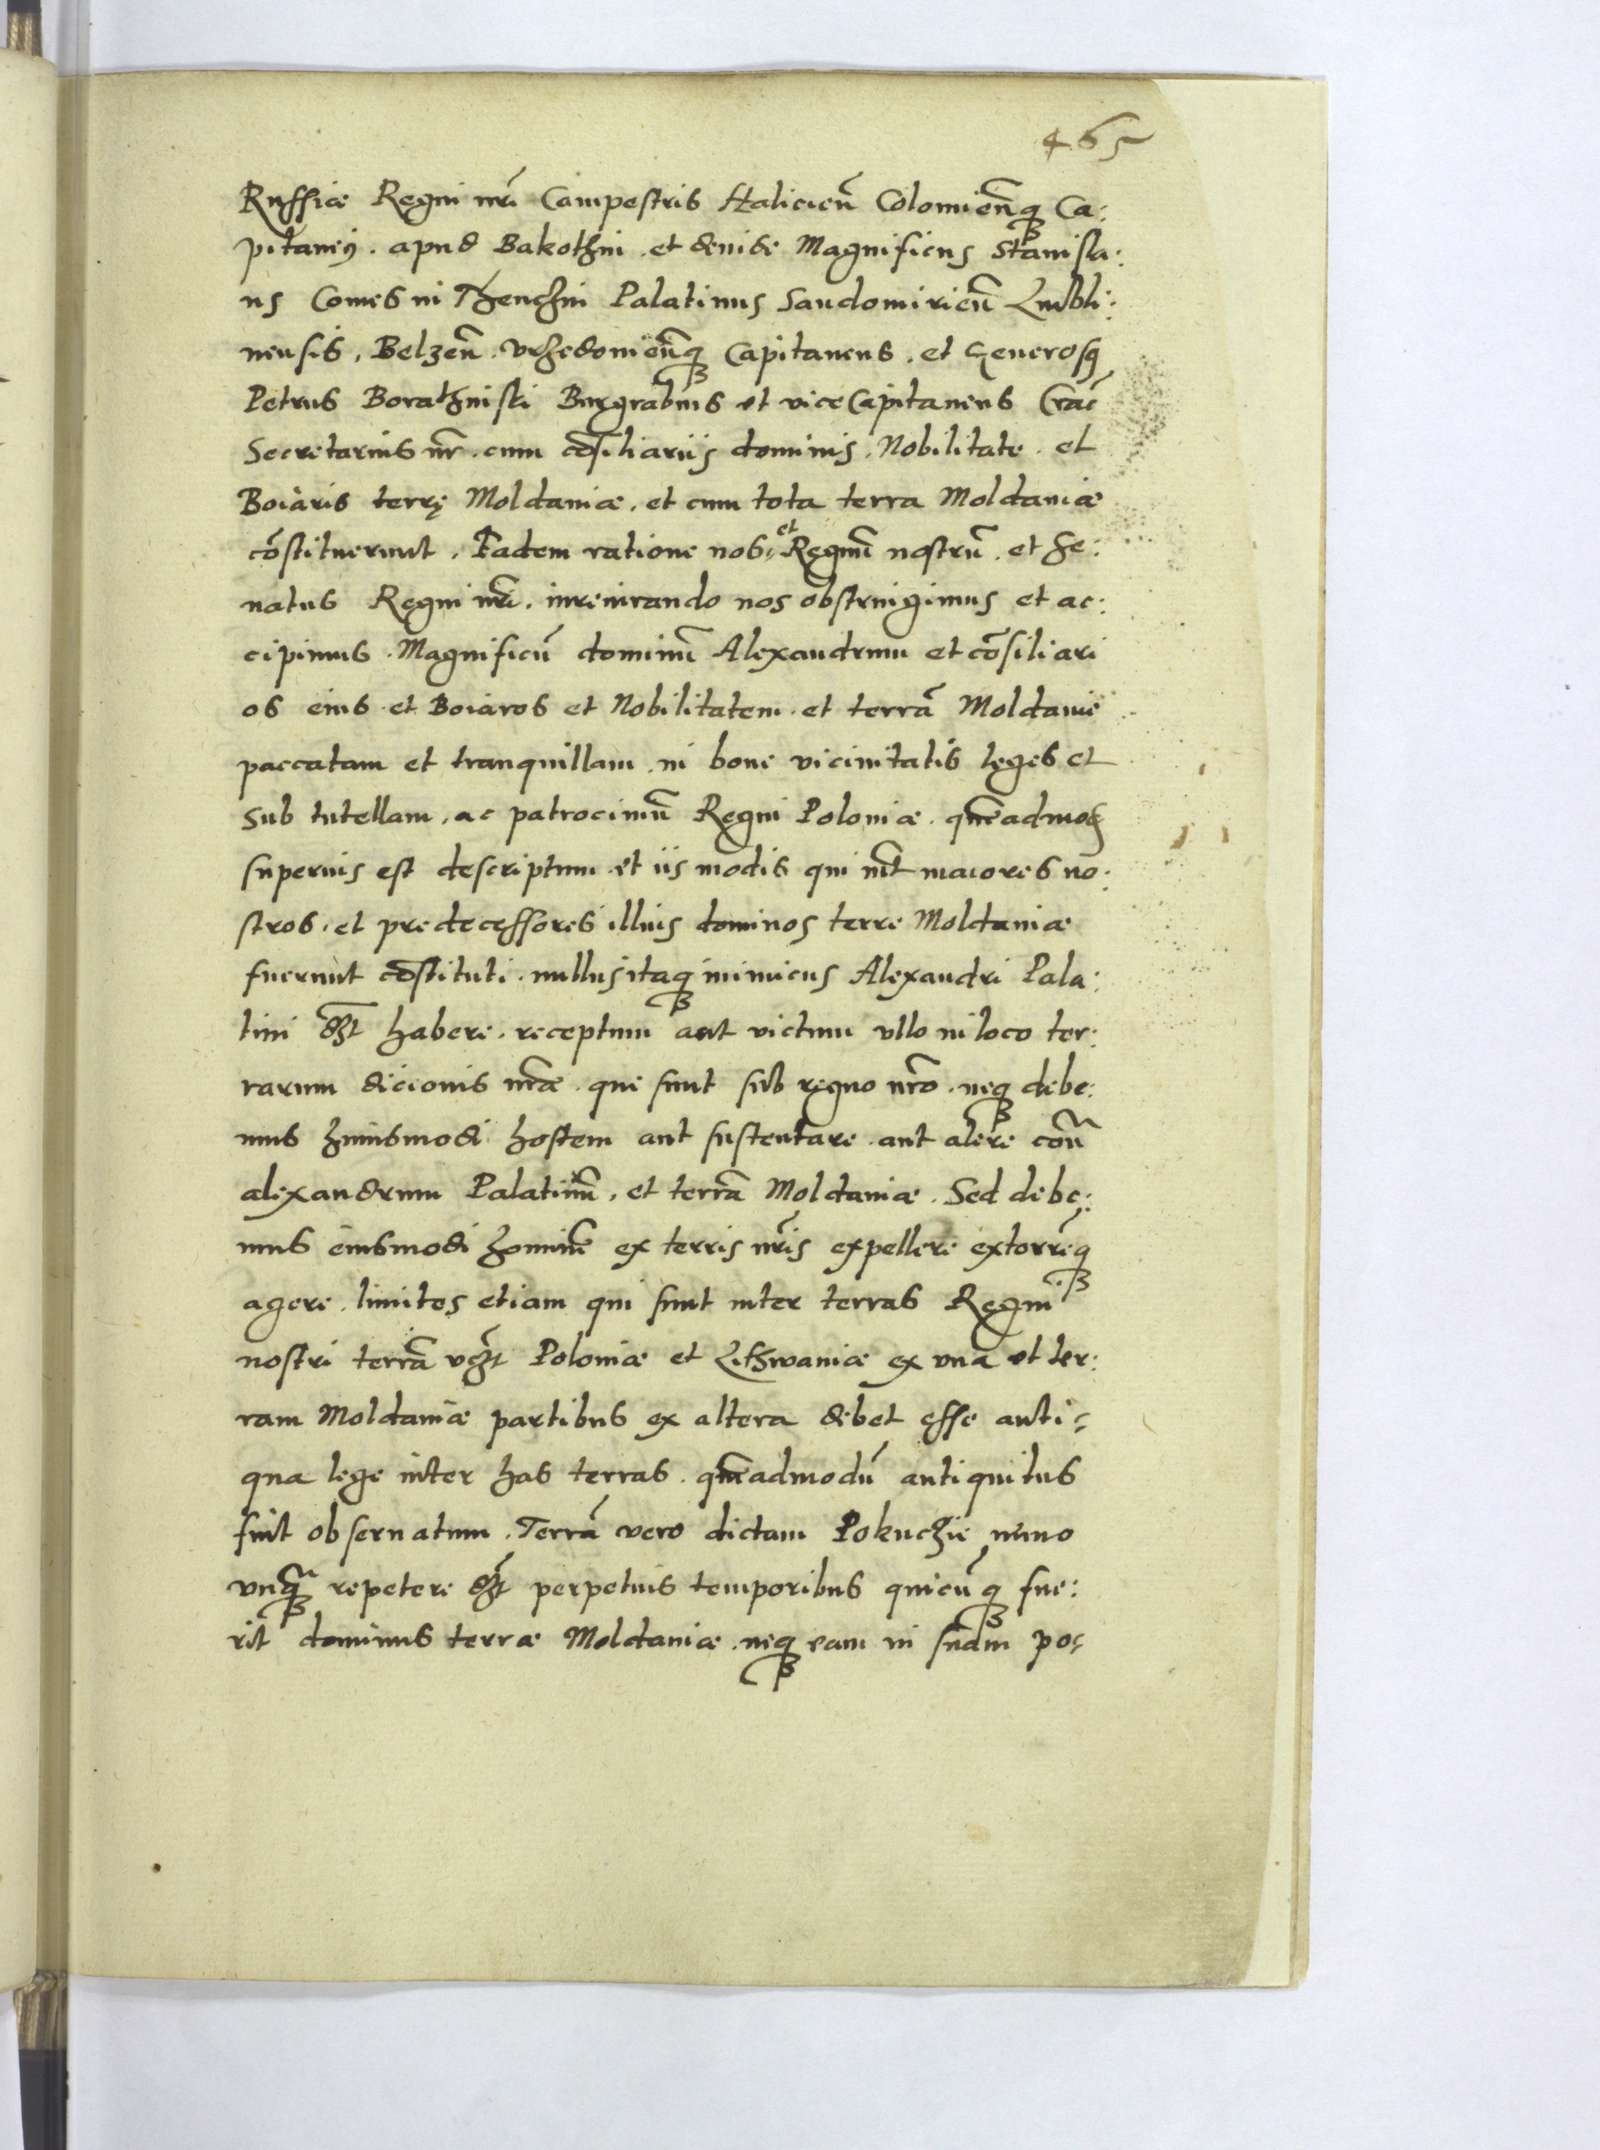 465
Russiæ Regni nr̃i Campestris Halicieñ Colomieñq₃ Ca:
pitaneꝰ. apud Bakothin. et deinde Magnificus Stanisla:
us Comes in Thenchin Palatinus Sandomirieñ Lubli:
nensis, Belzeñ. Vrzedovieñq₃ Capitaneus. et Generosꝰ
Petrus Borathinski Burgrabius et viceCapitaneus Crac̃
Secretarius nr̃. cum cõsiliariis dominis. Nobilitate. et
Boiaris terrę Moldaviæ. et cum tota terra Moldaviæ
cõstituerunt. Eadem ratione nos et Regnũ nostrũ. et se:
natus Regni nr̃i. iureiurando nos obstringimus et ac:
cipimus. Magnificũ dominũ Alexandrum et cõsiliari
os eius et Boiaros et Nobilitatem. et terrã Moldavie
paccatam et tranquillam. in bone vicinitatis leges et
sub tutellam, ac patrociniũ Regni Poloniæ. quẽadmod
superius est descriptum et iis modis qui int̃ maiores no:
stros. et predecessores illius dominos terre Moldaviæ
fuerunt cõstituti. nullus itaq₃ inimicus Alexandri Pala:
tini dz̃t habere. receptum aut victum vllo in loco ter:
rarum dicionis nr̃æ. que sunt sub regno nr̃o. neq₃ debe:
mus huiusmodi hostem aut sustentare. aut alere coñ
alexandrum Palatinũ. et terrã Moldaviæ. Sed debe:
mus eiusmodi hominẽ ex terris nr̃is expellere extorrẽq₃
agere. limites etiam qui sunt inter terras Regni
nostri terrã vz̃t Poloniæ et Lithwaniæ ex vna et ter:
ram Moldaviæ partibus ex altera debet esse anti:
qua lege inter has terras. quẽadmodũ antiquitus
fuit observatum. Terrã vero dictam Pokuczie nemo
vnq₃ã repetere dz̃t perpetuis temporibus quicũq₃ fue:
rit dominus terræ Moldaviæ. neq₃ eam in suam pos